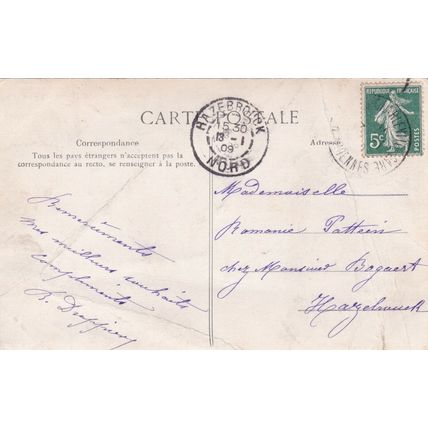 CARTE POSTALE
Correspondance
Tous les pays étrangers n'acceptent pas la
correspondance au recto, se renseigner à la poste.
Adresse
HAZEBROUCK
15 30
13 - 1
09
NORD
REPUBLIQUE FRANÇAISE
5c
POSTES
Remerciements
mes meilleurs souhaits
compliments
Mademoiselle
Romanie
chez Monsieur Bogaert
Hazebrouck